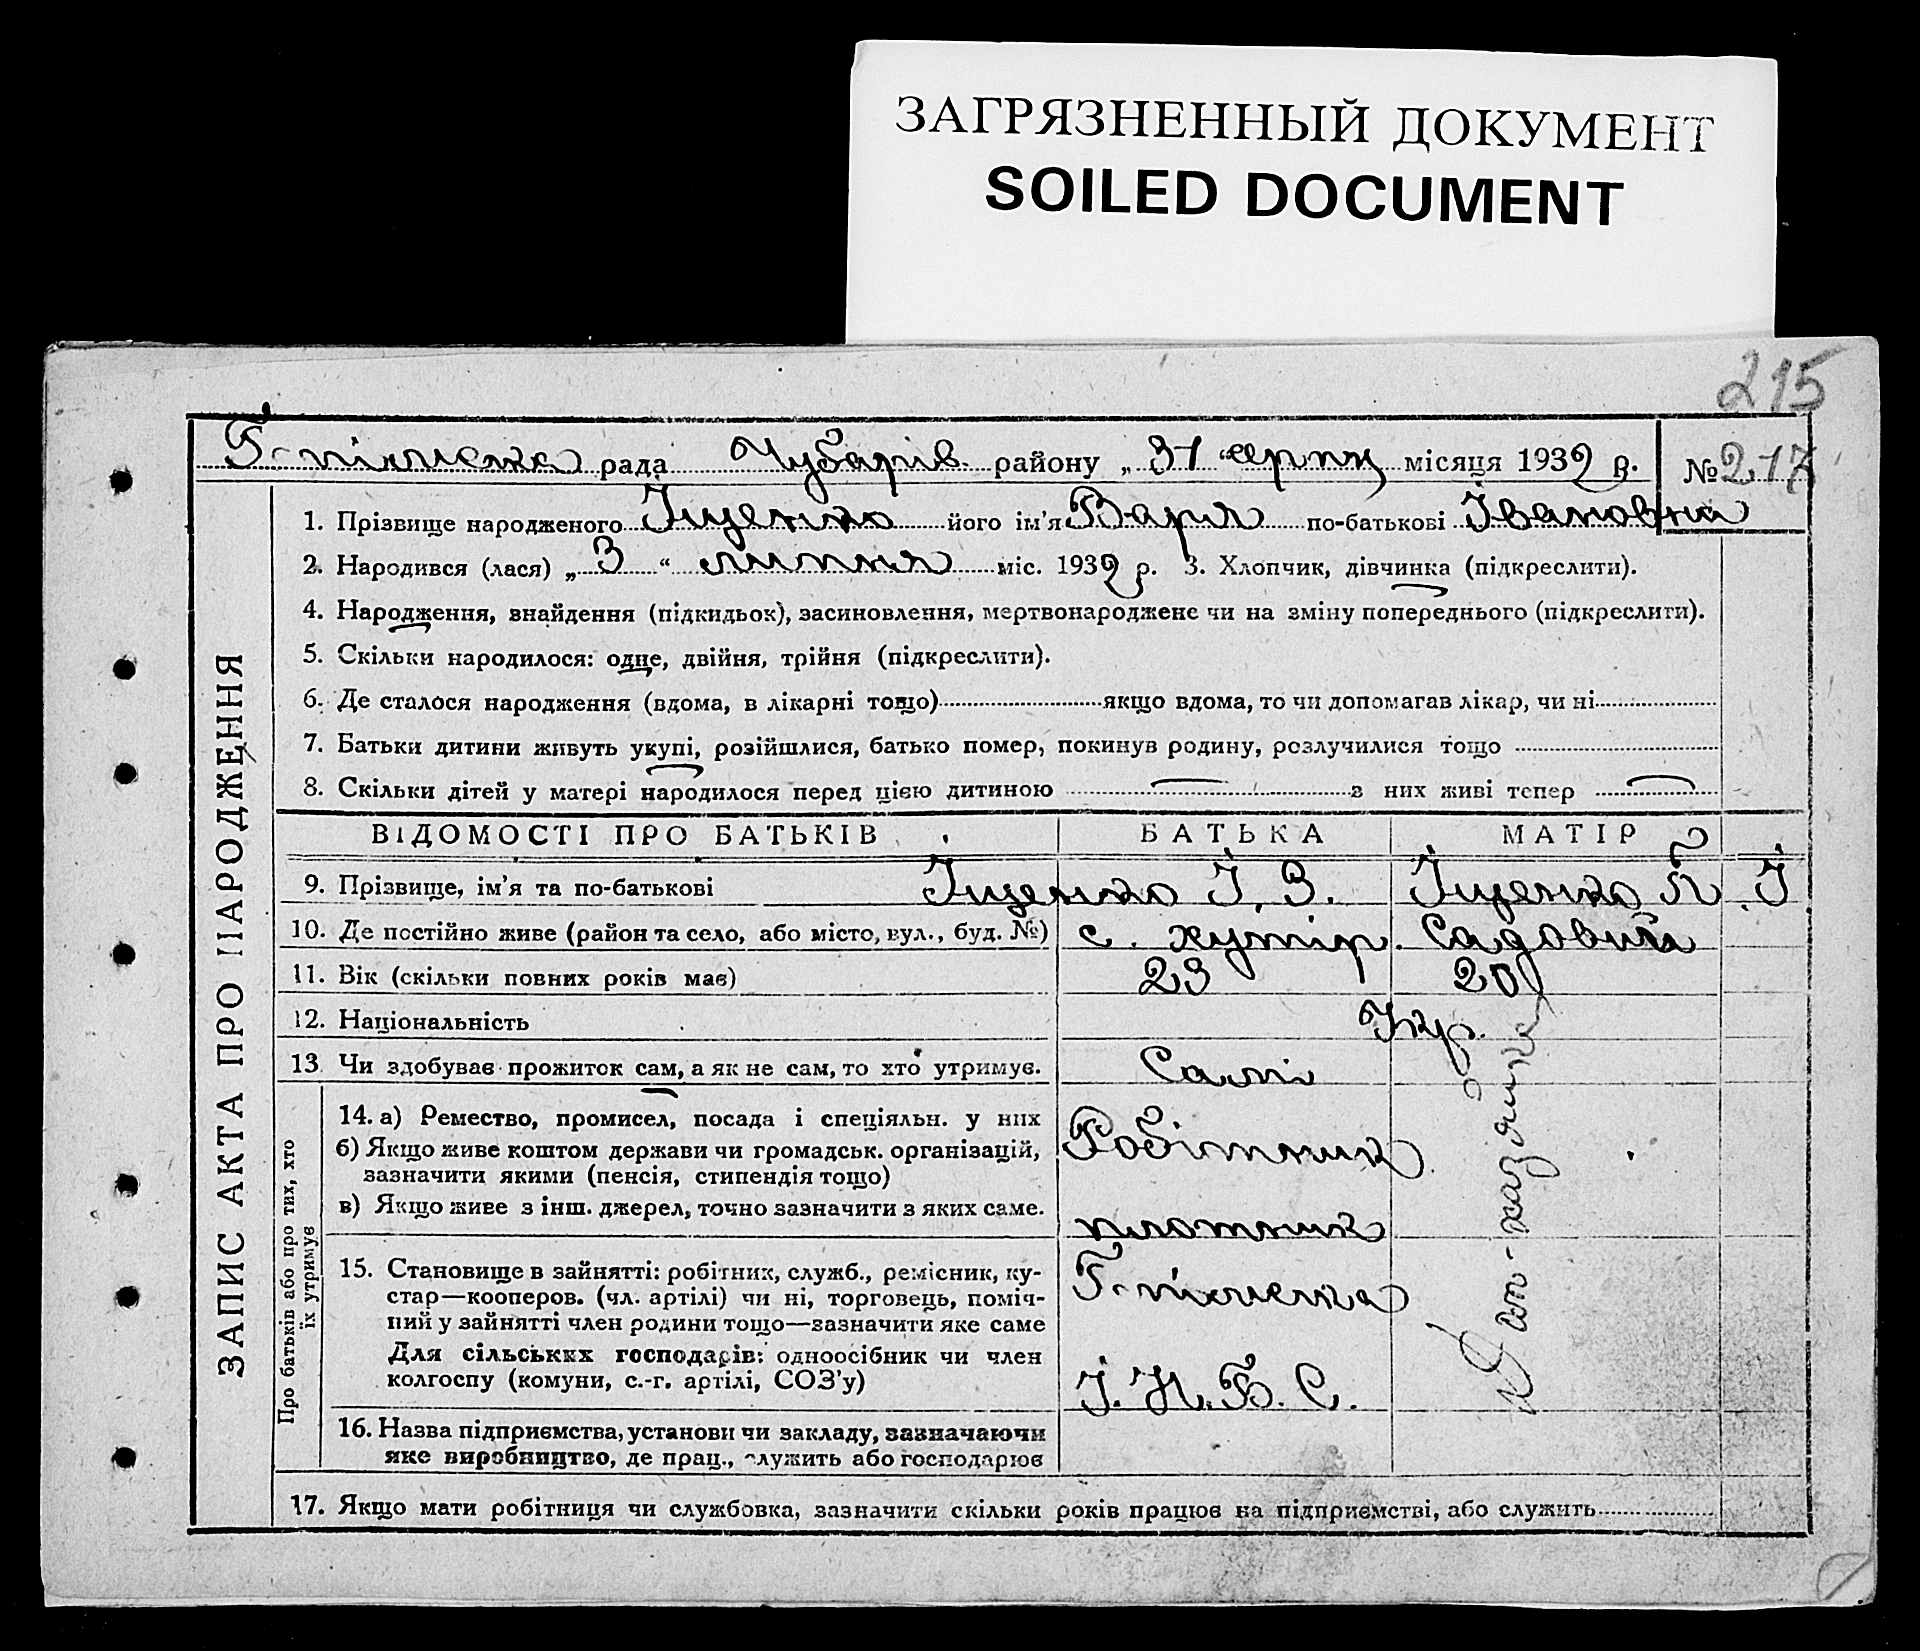 ЗАГРЯЗНЕННЫЙ ДОКУМЕНТ
SOILED DOCUMENT
215
рада Чубарів. району „31“ серпня місяця 1932 р. № 217
ЗАПИС АКТА ПРО НАРОДЖЕННЯ
1. Прізвище народженого Іщенко його ім'я Варя по-батькові Івановна
2. Народився (лася) „3“ липня міс. 1932 р. 3. Хлопчик, дівчинка (підкреслити).
4. Народження, знайдення (підкидьок), засиновлення, мертвонароджене чи на зміну попереднього (підкреслити).
5. Скільки народилося: одне, двійня, трійня (підкреслити).
6. Де сталося народження (вдома, в лікарні тощо) якщо вдома, то чи допомагав лікар, чи ні
7. Батьки дитини живуть укупі, розійшлися, батько помер, покинув родину, розлучилися тощо
8. Скільки дітей у матері народилося перед цією дитиною — з них живі тепер —
ВІДОМОСТІ ПРО БАТЬКІВ БАТЬКА МАТІР
9. Прізвище, ім'я та по-батькові Іщенко І. В. Іщенко П. І
10. Де постійно живе (район та село, або місто, вул., буд. №) с. хутір. Садовий
11. Вік (скільки повних років має) 23 20
12. Національність Укр.
13 Чи здобуває прожиток сам, а як не сам, то хто утримує. Самі
Про батьків або про тих, хто їх утримує
14. а) Ремество, промисел, посада і спеціяльн. у них Робітник
б) Якщо живе коштом держави чи громадськ. організацій,
зазначити якими (пенсія, стипендія тощо)
в) Якщо живе з інш. джерел, точно зазначити з яких саме. плотник
15. Становище в зайнятті: робітник, служб., ремісник, ку-
стар—кооперов. (чл. артілі) чи ні, торговець, поміч-
ний у зайнятті член родини тощо—зазначити яке саме
Для сільських господарів: одноосібник чи член
колгоспу (комуни, с.-г. артілі, СОЗ'у)
16. Назва підприємства, установи чи закладу, зазначаючи
яке виробництво, де прац., служить або господарює
17. Якщо мати робітниця чи службовка, зазначити скільки років працює на підприємстві, або служить